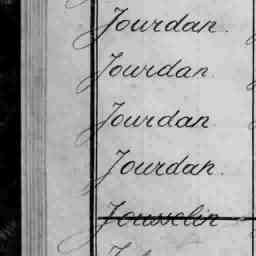 Jourdan.
Jourdan
Jourdan
Jourdan.
Jousselin